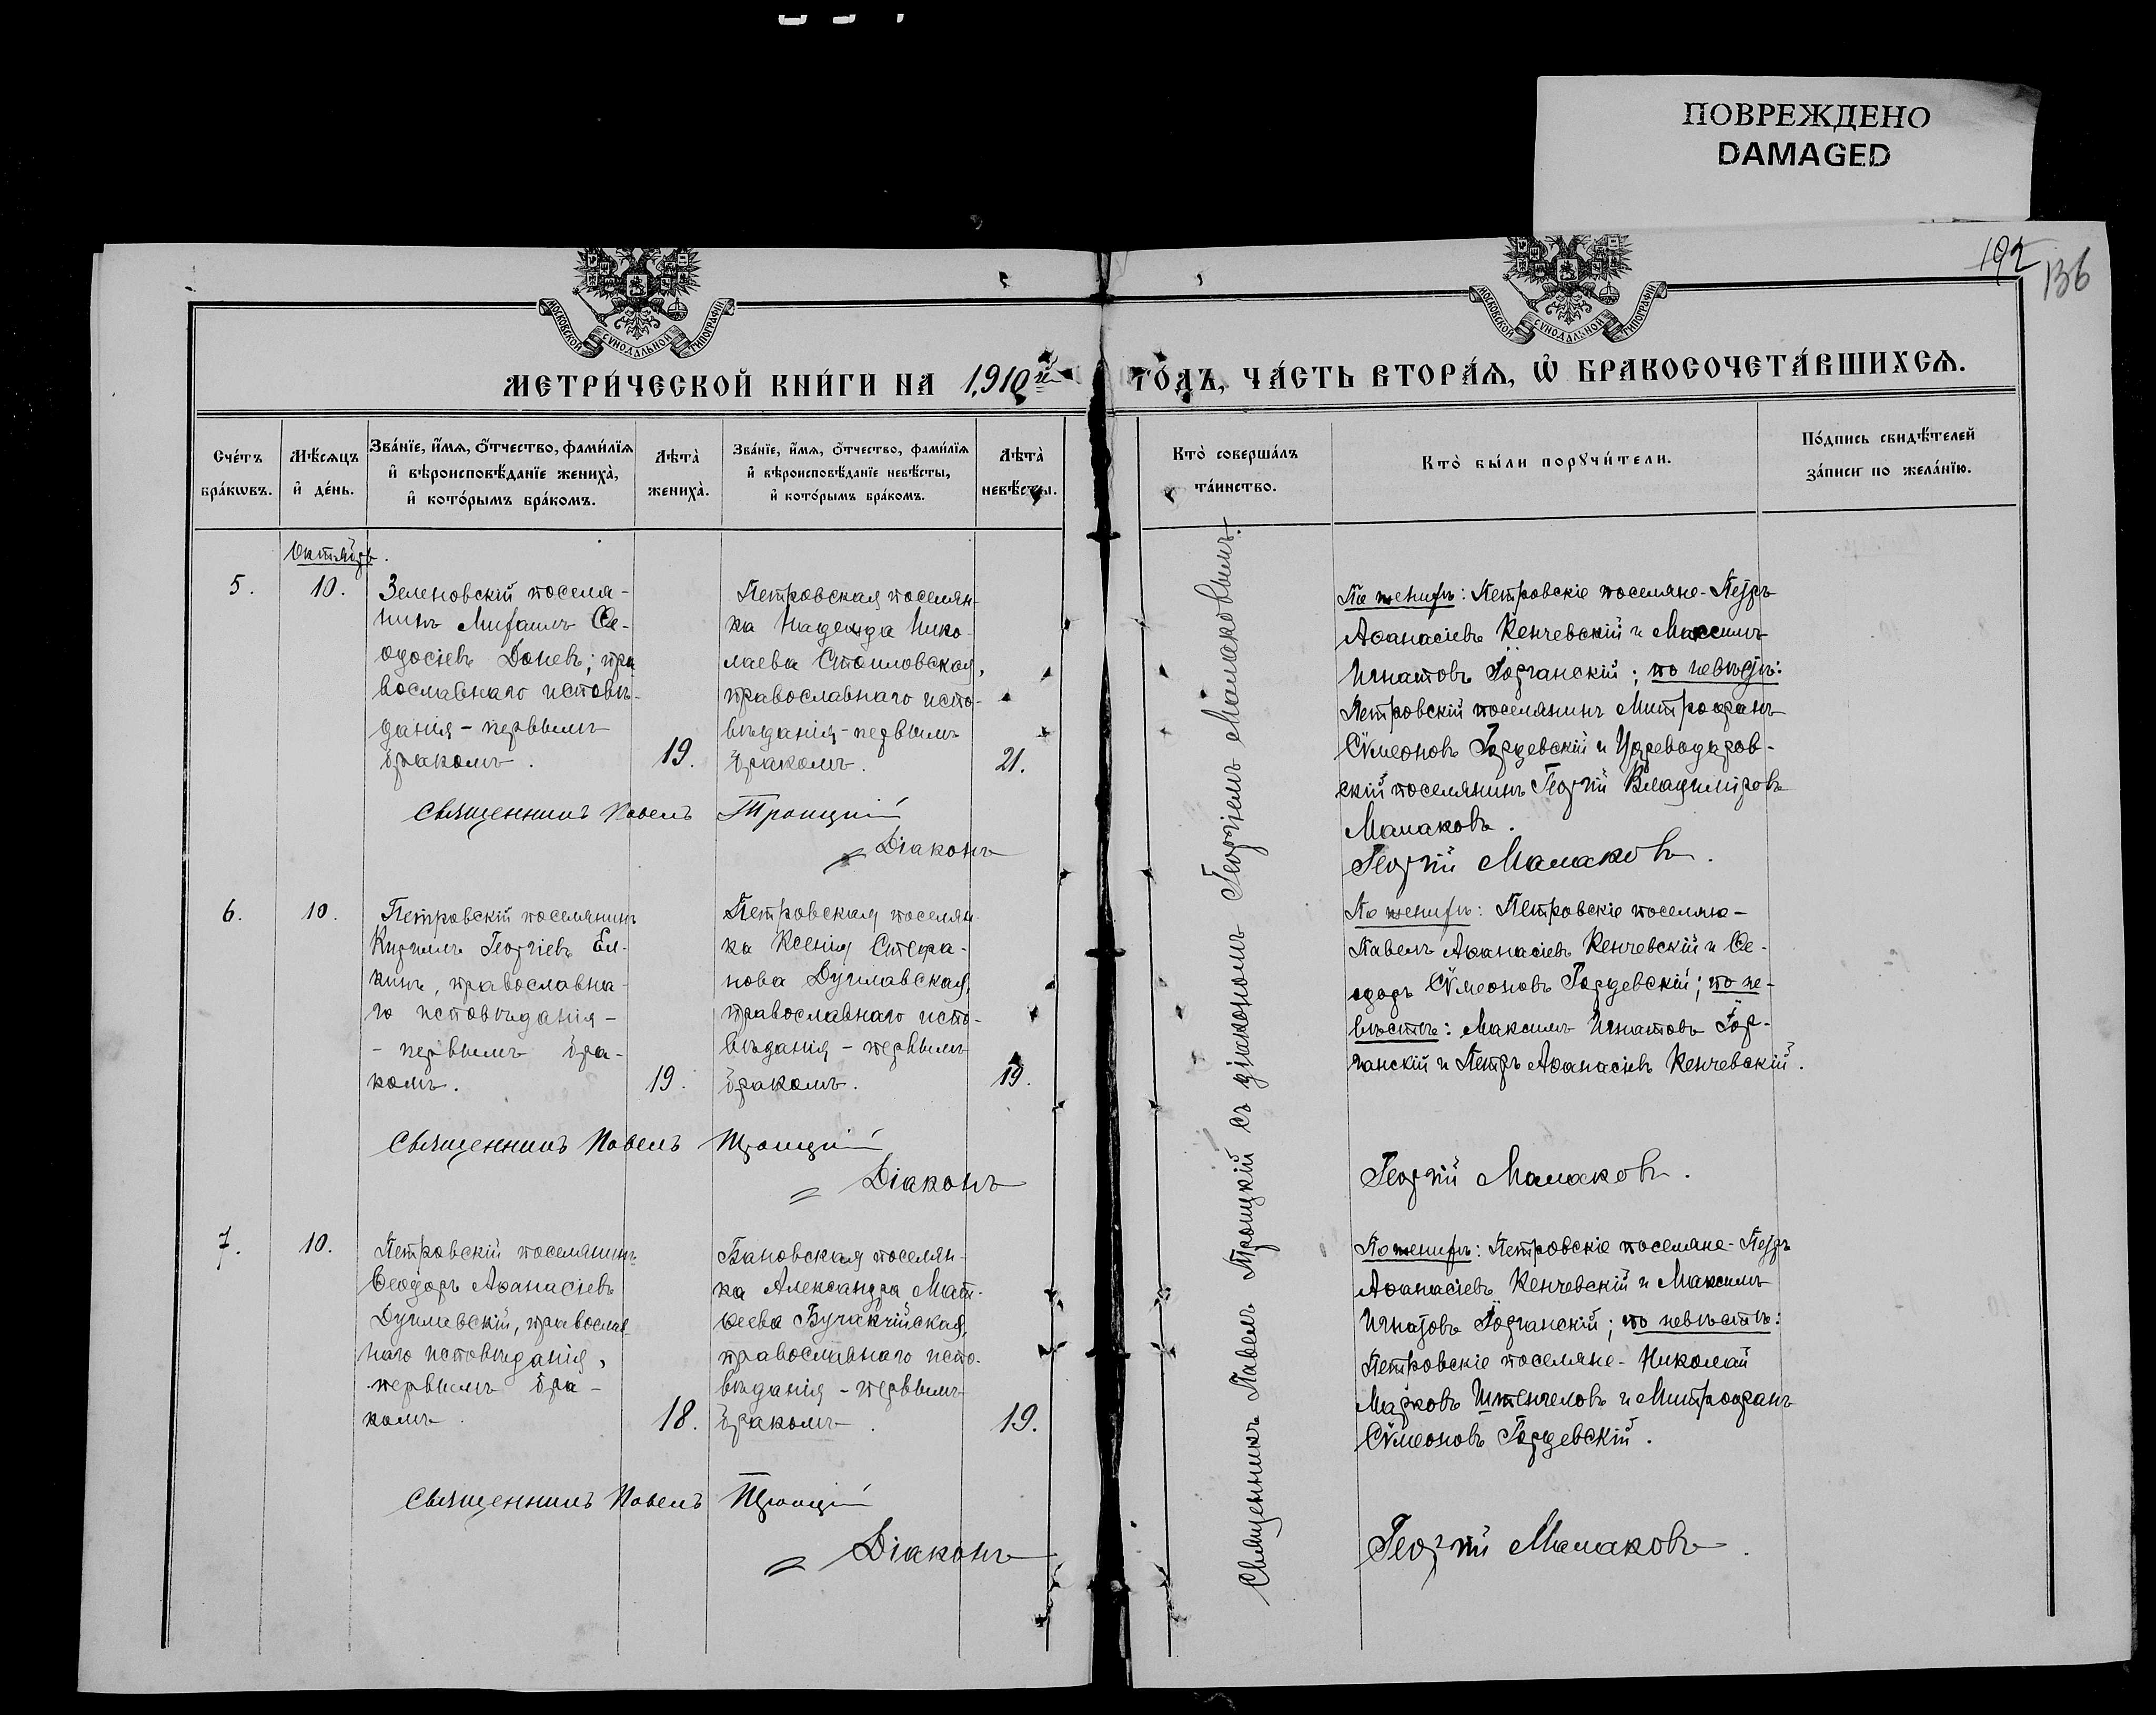 ПОВРЕЖДЕНО
DAMAGED
192
136
МОСКОВСКОЙ СѴНОДАЛЬНОЙ ТИПОГРАФІИ
МОСКОВСКОЙ СѴНОДАЛЬНОЙ ТИПОГРАФІИ
МЕТРИ́ЧЕСКОЙ КНИ́ГИ НА 1910й ГО́ДЪ, ЧА́СТЬ ВТОРА́Ѧ, Ѽ БРАКОСОЧЕТА́ВШИХСѦ.
Сче́тъ
бра́кѡвъ.
Мѣ́сѧцъ
и҆ де́нь.
Зва́нїе, и҆́мѧ, ѻ҆́тчество, фами́лїѧ
и҆ вѣроисповѣ́данїе жениха̀,
и҆ кото́рымъ бра́комъ.
Лѣта̀
жениха̀.
Зва́нїе, и҆́мѧ, ѻ҆́тчество, фами́лїѧ
и҆ вѣроисповѣ́данїе невѣ́сты,
и҆ кото́рымъ бра́комъ.
Лѣта̀
невѣ́сты.
Кто̀ соверша́лъ
та́инство.
Кто̀ бы́ли порꙋчи́тели.
По́дпись свидѣ́телей
за́писи по жела́нїю.
Октябрь.
5.
10.
Зеленовскій поселя-
нинъ Михаилъ Ѳе-
одосіевъ Доневъ; пра
вославнаго исповѣ-
данія - первымъ
бракомъ.
19.
Петровская поселян-
ка Надежда Нико-
лаева Стоиловская,
православнаго испо-
вѣданія - первымъ
бракомъ.
21.
Священникъ Павелъ Троицкій
Діаконъ
По женихѣ: Петровскіе поселяне - Петръ
Аѳанасіевъ Кенчевскій и Максимъ
Игнатовъ Горчанскій; по невѣстѣ:
Петровскій поселянинъ Митрофанъ
Сѵмеоновъ Гордевскій и Цареводаров-
скій поселянинъ Георгій Владиміровъ
Малаковъ.
Георгій Малаковъ.
6.
10.
Петровскій поселянинъ
Кириллъ Георгіевъ Ел-
кинъ, православна-
го исповѣданія -
- первымъ бра-
комъ.
19.
Петровская поселян-
ка Ксенія Стефа-
нова Дуглавская,
православнаго испо-
вѣданія - первымъ
бракомъ.
19.
Священникъ Павелъ Троицкій
Діаконъ
По женихѣ: Петровскіе поселяне -
Павелъ Аѳанасіевъ Кенчевскій и Ѳе-
одоръ Сѵмеоновъ Гордевскій; по не-
вѣстѣ: Максимъ Игнатовъ Гор-
чанскій и Петръ Аѳанасіевъ Кенчевскій.
Георгій Малаковъ.
7.
10.
Петровскій поселянинъ
Ѳеодоръ Аѳанасіевъ
Дуглавскій, православ
наго исповѣданія,
первымъ бра-
комъ.
18.
Бановская поселян-
ка Александра Мат-
ѳеева Бучакчійская,
православнаго испо-
вѣданія - первымъ
бракомъ.
19.
Священникъ Павелъ Троицкій
Діаконъ
По женихѣ: Петровскіе поселяне - Петръ
Аѳанасіевъ Кенчевскій и Максимъ
Игнатовъ Горчанскій; по невѣстѣ:
Петровскіе поселяне - Николай
Марковъ Штенчеловъ и Митрофанъ
Сѵмеоновъ Гордевскій.
Георгій Малаковъ.
Священникъ Павелъ Троицкій съ діакономъ Георгіемъ Малаковымъ.